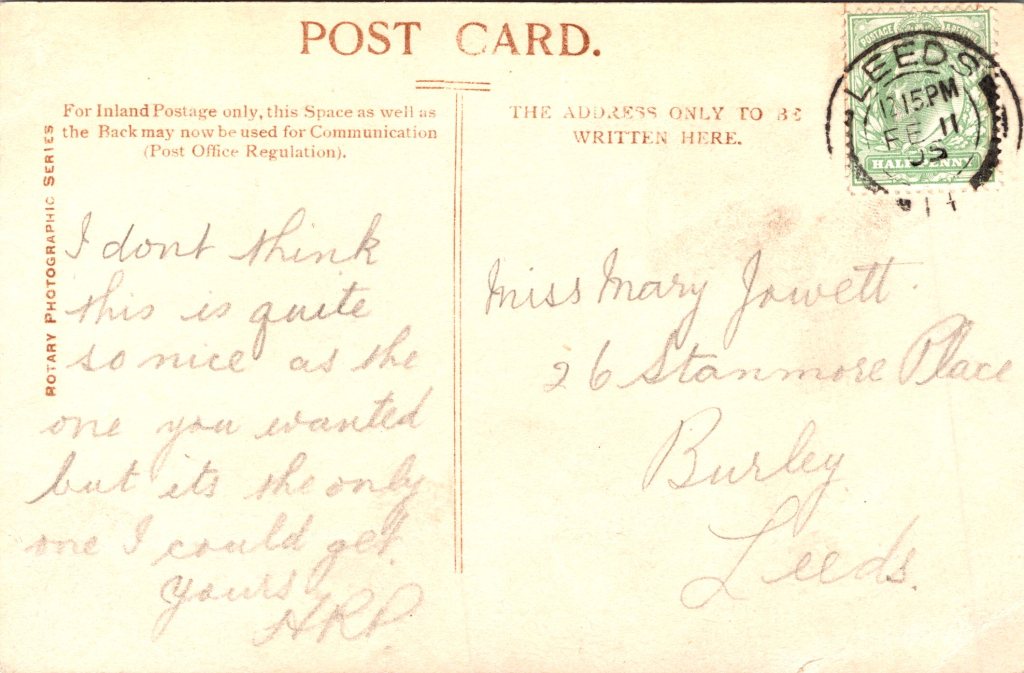 POST CARD.
For Inland Postage only, this Space as well as
the Back may now be used for Communication
(Post Office Regulation).
THE ADDRESS ONLY TO BE
WRITTEN HERE.
POSTAGE & REVENUE
HALFPENNY
LEEDS
12.15PM
FE 11
05
14
ROTARY PHOTOGRAPHIC SERIES
I dont think
this is quite
so nice as the
one you wanted
but its the only
one I could get
yours
HRP
Miss Mary Jowett.
26 Stanmore Place
Burley
Leeds.